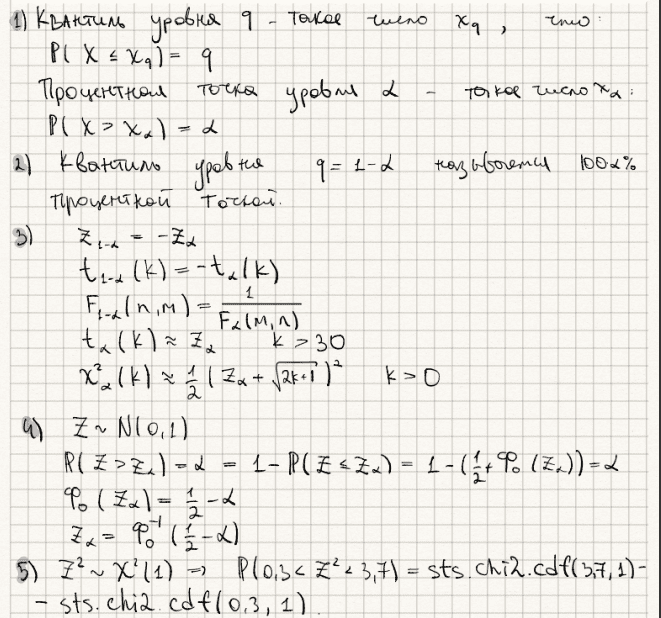 1) Квантиль уровня q - такое число x_q , что:
P( X ≤ x_q) = q
Процентная точка уровня α - такое число x_α :
P( X > x_α) = α
2) Квантиль уровня q = 1-α называется 100α%
процентной точкой.
3) z_{1-α} = -z_α
t_{1-α} (k) = -t_α (k)
F_{1-α} (n,m) = 1 / F_α(m,n)
t_α (k) ≈ z_α k > 30
χ²_α (k) ≈ 1/2 ( z_α + √(2k+1) )² k > 0
4) Z ~ N(0,1)
P( Z > z_α) = α = 1 - P(Z ≤ z_α) = 1 - (1/2 + φ₀ (z_α)) = α
φ₀ (z_α) = 1/2 - α
z_α = φ₀⁻¹ (1/2 - α)
5) Z² ~ χ²(1) ⇒ P(0,3 < Z² < 3,7) = sts.chi2.cdf(3,7,1) -
- sts.chi2.cdf(0.3, 1).